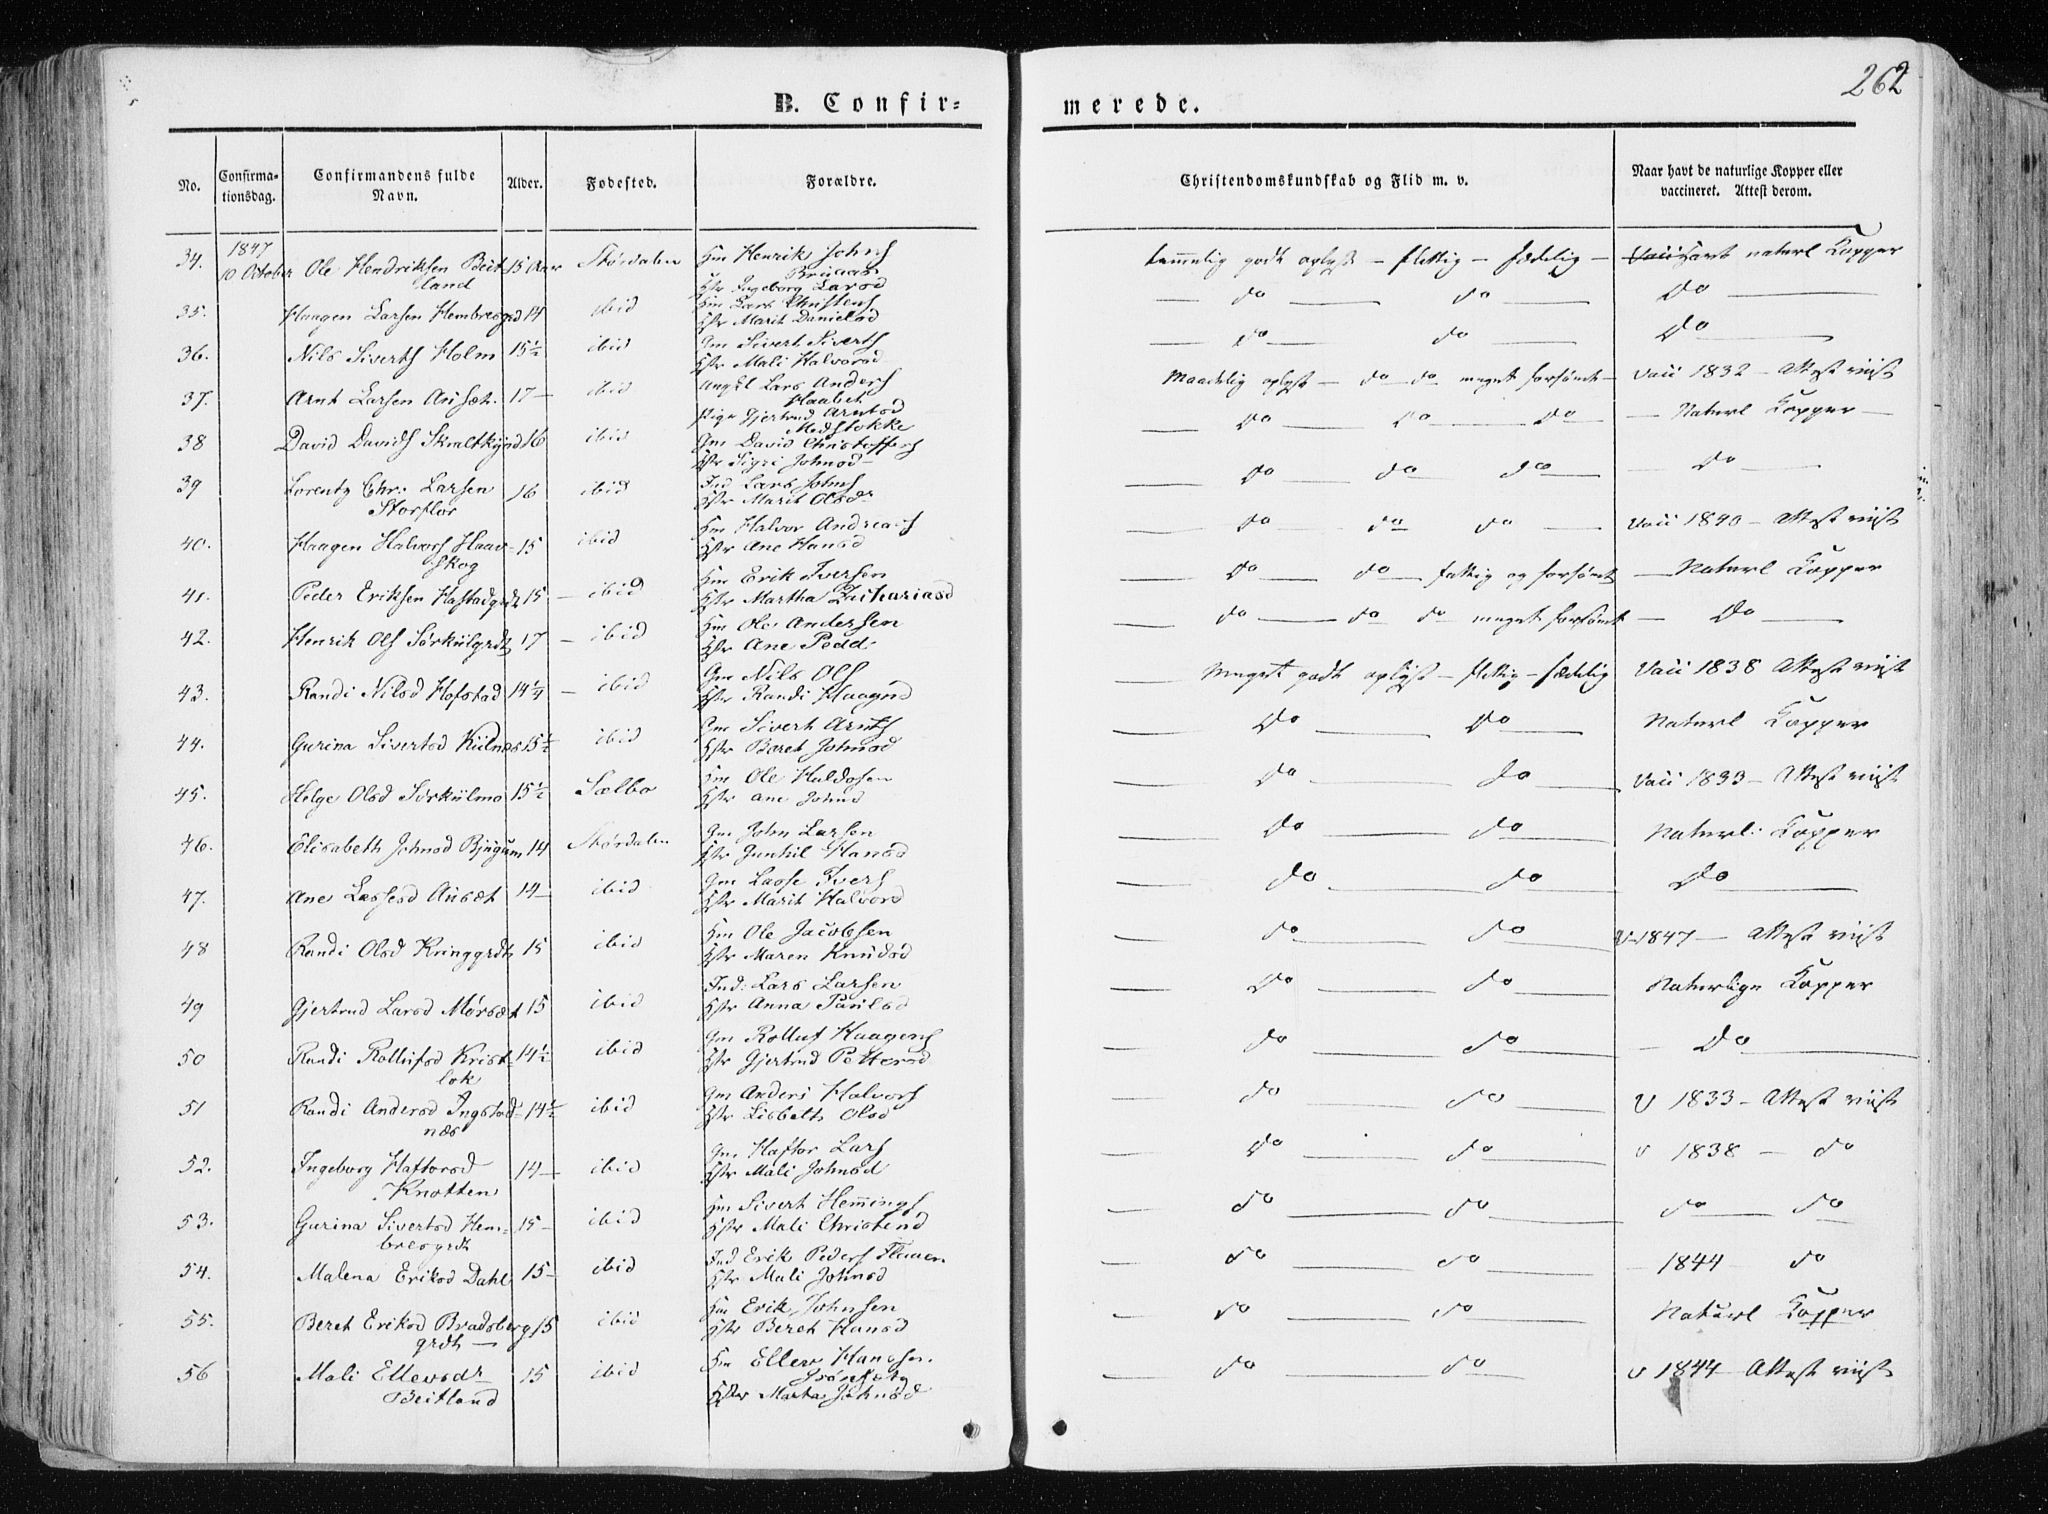 262
B. Confir= merede.
No. Confirma-tionsdag. Confirmandens fulde Navn. Alder. Fødested. Forældre. Christendomskundskab og Flid m. v. Naar havt de naturlige Kopper eller vaccineret. Attest derom.
34. 1847 10 October Ole Hendriksen Beit-land 15 Aar Størdalen Hm Henrik Johns Hstr Ingeborg Larsd temmelig godt oplyst — flittig — sædelig — Havt naturl Kopper
35. Haagen Larsen Hembregrd 14 ibid Hm Lars Christens Hstr Marit Danielsd — Do — do — Do —
36. Nils Siverts Holm 15½ ibid Gm Sivert Siverts Hstr Mali Halvorsd — Do — do — Do —
37. Arnt Larsen Ausæt 17 — ibid Ungkl Lars Anders Haabet Pige Gjertrud Arntsd Medstokke Maadelig oplyst — do do meget forsømt — Vacc 1832 — Attest viist
38 David Davids 16 ibid Gm David Christoffers Hstr Sigri Johnsd — — Do — Do — Do — Naturl Kopper —
39 Lorentz Chr: Larsen Storflor 16 ibid Ind Lars Johns Hstr Marit Olsdr — Do — do — do — Do —
40. Haagen Halvors Haav-skog 15 ibid Hm Halvor Andreas Hstr Ane Hansd — Do — do — do — Vacc 1840 — Attest viist
41. Peder Eriksen Hastadgrdt 15 — ibid Hm Erik Iversen Hstr Martha Zachariasd — Do — do — fattig og forsømt — Naturl Kopper
42. Henrik Ols Sørkiilgrdt 17 — ibid Hm Ole Andersen Hstr Ane Pedd — do — do — do meget forsømt — Do —
43. Randi Nilsd Hofstad 14¼ — ibid Gm Nils Ols Hstr Randi Haagnd — Meget godt oplyst — flittig — sædelig Vacc 1838 Attest viist
44. Gurina Sivertsd Kiilnæs 15½ ibid Gm Sivert Arnts Hstr Beret Johnsd — Do — Do — Naturl Kopper
45. Helge Olsd Sørkiilmo 15½ Sælbo Hm Ole Haldosen Hstr Ane Johnd — Do — do Vacc 1833 — Attest viist
46. Elisabeth Johnsd Bjugum 14 Størdalen Gm John Larsen Hstr Gunhil Hansd — Do — do — Naturl: Kopper
47. Ane Lassesd Ausæt 14 — ibid Gm Lasse Ivers Hstr Marit Halvord — Do — do — Do —
48 Randi Olsd Kringgrdt 15 ibid Hm Ole Jacobsen Hstr Maren Knudsd — do — do — V 1847 — Attest viist
49 Gjertrud Larsd Mørsæt 15 ibid Ind: Lars Larsen Hstr Anna Paulsd — Do — do — Naturlige Kopper
50 Randi Rollufsd Krist-lok 14½ ibid Gm Rolluf Haagens Hstr Gjertrud Pettersd — Do — do — — Do —
51 Randi Andersd Ingstad-næs 14½ ibid Gm Anders Halvors Hstr Lisbeth Olsd — do — do — V 1833 — Attest viist
52. Ingeborg Haftorsd Knotten 14 — ibid Gm Haftor Lars Hstr Mali Johnsd — Do — do — v 1838 — do
53. Gurina Sivertsd Hem-bresgrdt 15 — ibid Hm Sivert Hemmings Hstr Mali Christend — do — do — do — do
54. Malena Eriksd Dahl 15 — ibid Ind Erik Peders Hstr Mali Johnsd — do — do — — 1844 do
55. Beret Eriksd Bradsberg grdt — 15 ibid Hm Erik Johnsen Hstr Beret Hansd — do — do — Naturl Kopper
56 Mali Ellevsdr Beitland 15 ibid Hm Ellev Hansen Hstr Marta Johnsd — do — do — v 1844 — Attest viist